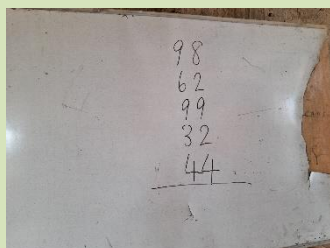 98
62
99
32
44